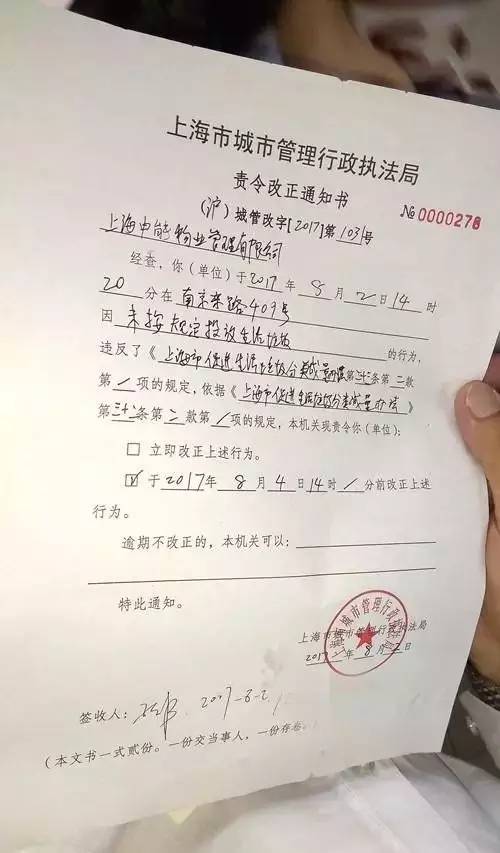 上海市城市管理行政执法局
责令改正通知书
No 0000278
(沪)城管改字[2017]第1031号
上海中能物业管理有限公司
经查,你(单位)于2017年8月2日14时
20分在南京东路409号
因未按规定投放生活垃圾的行为,
违反了《上海市促进生活垃圾分类减量办法》第三十条第二款
第/项的规定,依据《上海市促进生活垃圾分类减量办法》
第三十条第二款第/项的规定,本机关现责令你(单位):
□ 立即改正上述行为。
☑ 于2017年8月4日14时/分前改正上述
行为。
逾期不改正的,本机关可以:
特此通知。
上海市城市管理行政执法局
2017年8月2日
签收人: 2017-8-2
(本文书一式贰份。一份交当事人,一份存卷。